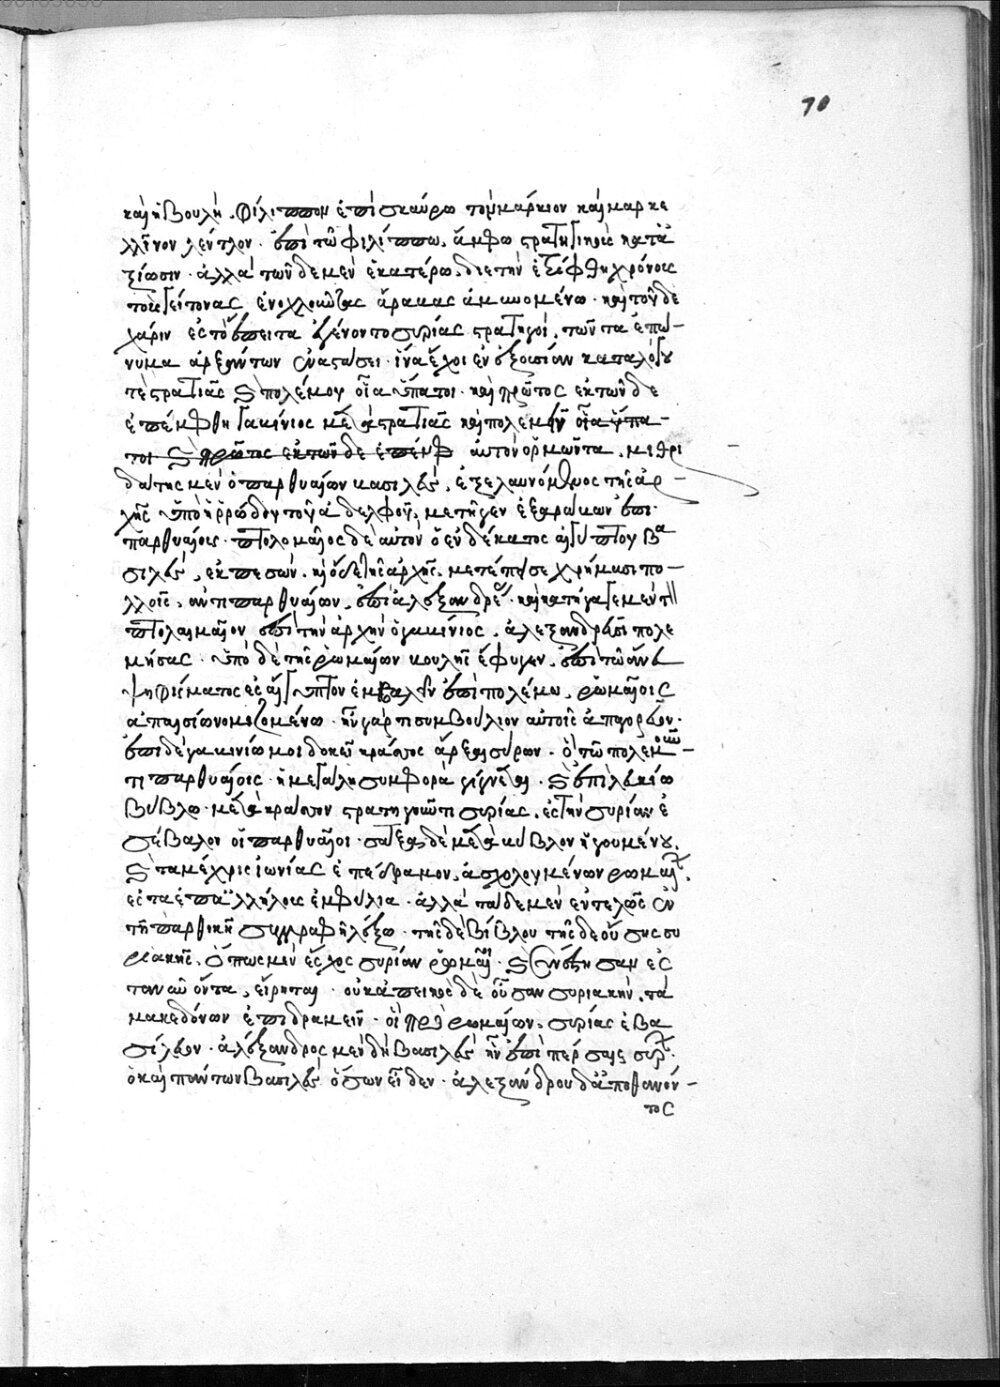 70
καὶ ἡ βουλὴ. φίλιππον ἐπὶ σκαύρω τὸν μάρκιον καὶ μαρκε
λλῖνον λέντλον. ἐπὶ τῶ φιλίππω, ἄμφω στρατηγικοὺς κατὰ
ξίωσιν. ἀλλὰ τῶνδε μὲν ἑκατέρω, διετὴς ἐξέφθη χρόνος
τοὺς γείτονας ἐνοχλοῦντας ἄραβας ἀμυνομένω. καὶ τοῦδε
χάριν ἐς τὸ ἔπειτα ἐγένοντο συρίας στρατηγοὶ, τῶν τὰ ἐπώ-
νυμα ἀρξάντων ἐν ἄστει. ἵνα ἔχοι ἐν ἐξουσίαν καταλόγου
τὲ στρατιᾶς καὶ πολέμου οἷα ὕπατοι. καὶ πρῶτος ἐκ τῶνδε
ἐπέμφθη γακίνιος μετὰ στρατιᾶς καὶ πολεμεῖν οἷα ὕπα-
τοι καὶ πρῶτος ἐκ τῶνδε ἐπέμφ αὐτὸν ὁρμῶντα, μιθρι
δάτης μὲν ὁ παρθυαίων κασιλεὺς, ἐξελαυνόμενος τῆς ἀρ-
χῆς ὑπὸ ἡρώδου τοῦ ἀδελφοῦ, μετῆγεν ἐξ ἀράκων ἐπὶ
παρθυαίοις. πτολομαῖος δὲ αὐτὸν ὁ ἐνδέκατος αἰγύπτου βα
σιλεὺς, ἐκπεσὼν καὶ ὅδε τῆς ἀρχῆς, μετέπεισε χρήμασι πο-
λλοῖς, ἀντὶ παρθυαίων, ἐπὶ ἀλεξανδρέας. καὶ κατήγαγε μὲν τ
πτολομαῖον ἐπὶ τὴν ἀρχὴν ὁ γακίνιος, ἀλεξανδρεῦσι πολε
μήσας. ὑπὸ δὲ τῆς ῥωμαίων κουλῆς ἔφυγεν, ἐπὶ τῶ ἄνευ
ψηφίσματος ἐς αἴγυπτον ἐμβαλεῖν ἐπὶ πολέμω, ῥωμαίοις
ἀπαισίω νομιζομένω. ἦν γάρ τι συμβούλιον αὐτοῖς ἀπαγορεῦον.
ἐπὶ δὲ γακινίω μοι δοκεῖ κράσσος ἄρξαι σύρων. ὅτω πολεμοῦν-
τι παρθυαίοις. ἡ μεγάλη συμφορὰ γίγνεται. καὶ ἐπὶ λευκίω
βύβλω. μετὰ κράσσον στρατηγοῦντι συρίας, ἐς τὴν συρίαν ἐ
σέβαλον οἱ παρθυαῖοι. σάξα δὲ μετὰ κύβλον ἡγουμένου,
καὶ τὰ μέχρις ἰωνίας ἐπέδραμον, ἀσχολουμένων ῥωμαίων
ἐς τὰ ἐπ' ἀλλήλοις ἐμφύλια. ἀλλὰ τάδε μὲν ἐντελῶς ἐν
τῆ παρθικῆ συγγραφῆ λέξω. τῆσδε βίβλου τῆσδε οὔσης συ
ριακῆς, ὅπως μὲν ἔσχος συρίαν ῥωμαῖοι. καὶ συνέστησαν ἐς
τὸ νῦν ὄντα, εἴρηται. οὐκ ἀπεικὸς δὲ οὖσαν συριακὴν, τὰ
μακεδόνων ἐπιδραμεῖν. οἳ πρὸ ῥωμαίων, συρίας ἐβα
σίλευον. ἀλέξανδρος μὲν δὴ βασιλεὺς ἦν ἐπὶ πέρσαις σύρων
ὁ καὶ πάντων βασιλεὺς ὅσων εἶδεν. ἀλεξάνδρου δ' ἀποθανόν-
τος